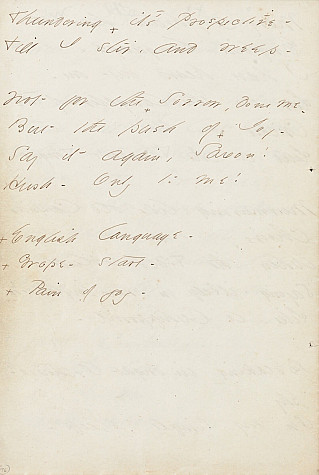 Thundering + it's Prospective -
Till I stir, and weep -
Not for the + Sorrow, done me -
But the push of + Joy -
Say it again, Saxon!
Hush - Only to me!
+ English Language -
+ Grope - start -
+ Pain of joy -